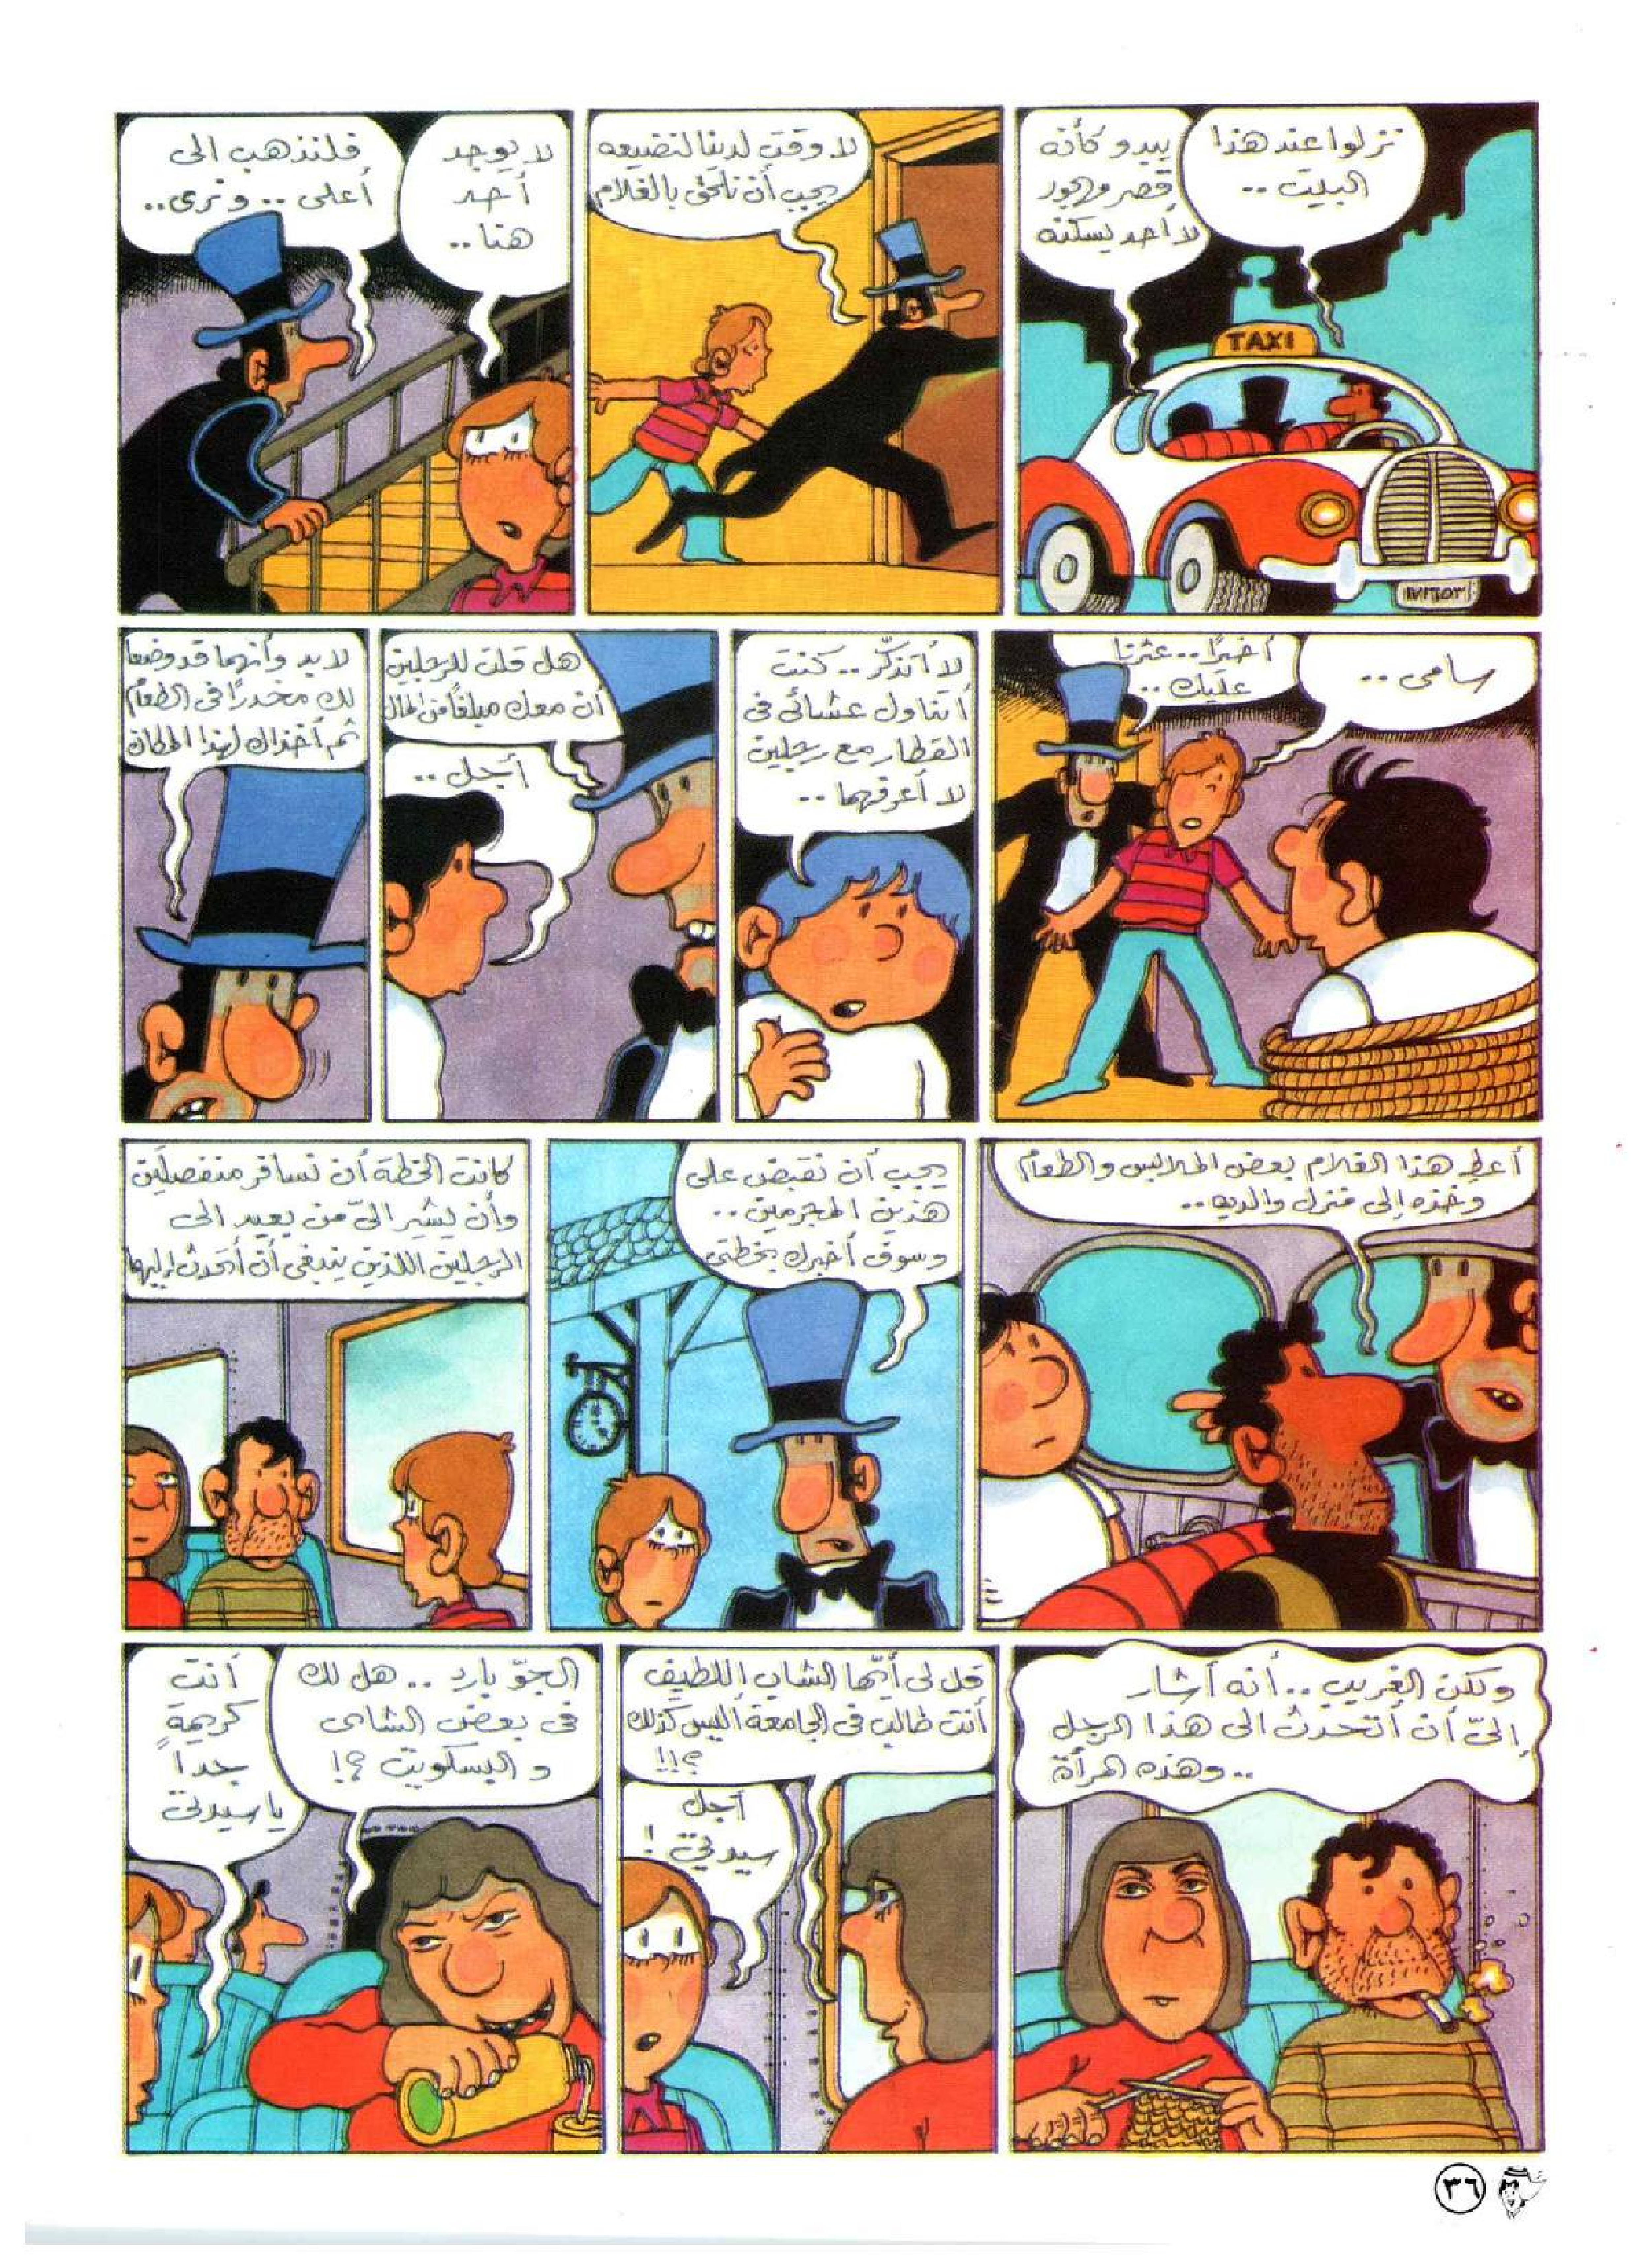 نزلوا عند هذا
البيت ..
يبدو كأنه
قصر مهجور
لا أحد يسكنه
TAXI
لا وقت لدينا لنضيعه
يجب أن نلحق بالغلام
لا يوجد
أحد
هنا ..
فلنذهب الى
أعلى .. و نرى ..
سامى ..
أخيرًا .. عثرنا
عليك ..
لا أتذكّر .. كنت
أتناول عشائى فى
القطار مع رجلين
لا أعرفهما ..
هل قلت للرجلين
أن معك مبلغاً من المال
أجل ..
لابد وأنهما قد وضعا
لك مخدرًا فى الطعام
ثم أخذاك لهذا المكان
أعط هذا الغلام بعض الملابس والطعام
وخذه إلى منزل والديه ..
يجب أن نقبض على
هذين المجرمين ..
وسوف أخبرك بخطتى
كانت الخطة أن نسافر منفصلين
وأن يشير الىّ من بعيد الى
الرجلين اللذين ينبغى أن أتحدث إليهما
ولكن الغريب .. أنه أشار
إلىّ أن أتحدث الى هذا الرجل
.. وهذه المرأة
قل لى أيها الشاب اللطيف
أنت طالب فى الجامعة أليس كذلك
؟!!
أجل
سيدتى !
الجوّ بارد .. هل لك
فى بعض الشاى
و البسكويت ؟!
أنت
كريمة
جداً
يا سيدتى
٣٦